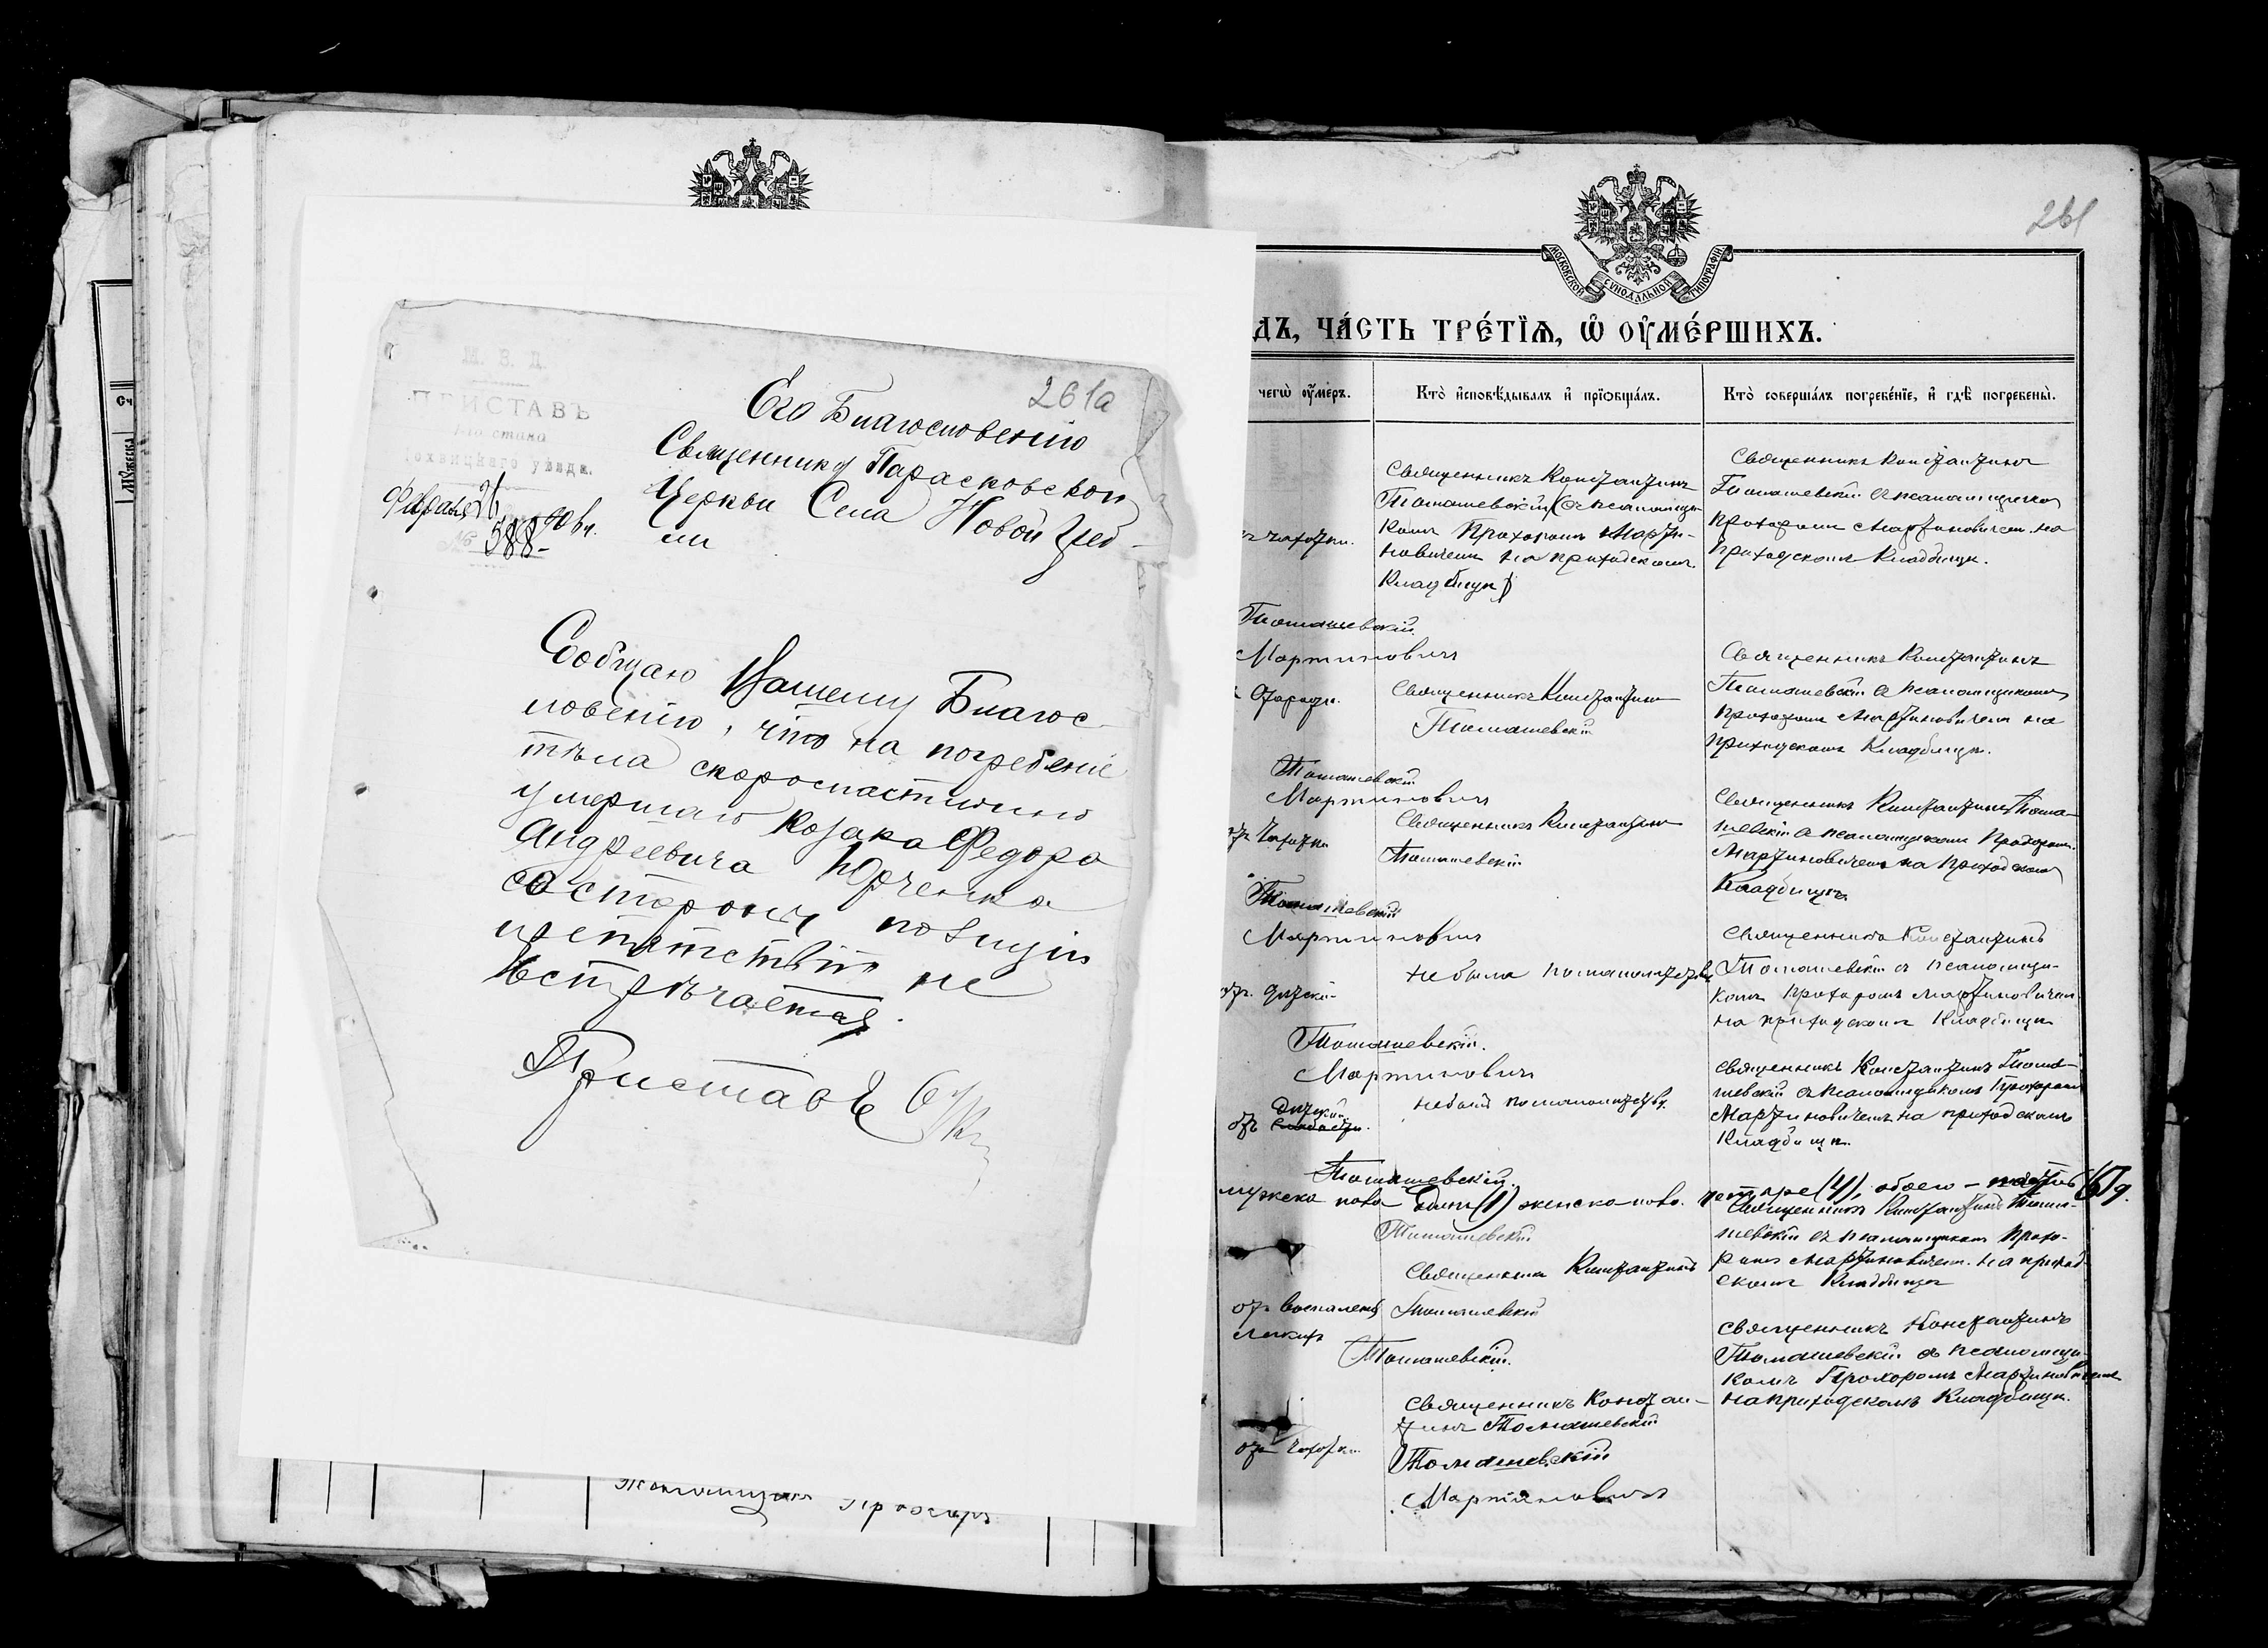 М. В. Д.
ПРИСТАВЪ
стана
Лохвицкаго уѣзда.
Февраля 26
1906 г.
№ 588
261а
Его Благословенію
Священнику Парасковской
Церкви Села Новой Греб-
ли
Сообщаю Вашему Благос-
ловенію, что на погребеніе
тѣла скоропостижно
умершаго козака Федора
Андреевича Юрченка
со стороны полиціи
препятствій не
встрѣчается.
Приставъ
Псаломщикъ Прохоръ
261
МОСКОВСКОЙ СѴНОДАЛЬНОЙ ТИПОГРАФІИ
ДЪ, ЧА́СТЬ ТРЕ́ТІѦ, Ѡ҆ ОУ҆МЕ́РШИХЪ.
чегѡ̀ оу҆́меръ.
Кто̀ и҆сповѣ́дывалъ и҆ прїѡбща́лъ.
Кто̀ соверша́лъ погребе́нїе, и҆ гдѣ̀ погребены̀.
чахотки.
Священникъ Константинъ
Томашевскій (съ псаломщи-
комъ Прохоромъ Марти-
новичемъ на приходскомъ
кладбищѣ)
Священникъ Константинъ
Томашевскій съ псаломщикомъ
Прохоромъ Мартиновичемъ на
приходскомъ кладбищѣ.
Томашевскій.
Мартиновичъ
Священникъ Константинъ
Томашевскій
Священникъ Константинъ
Томашевскій съ псаломщикомъ
Прохоромъ Мартиновичемъ на
приходскомъ кладбищѣ.
Томашевскій
Мартиновичъ
отъ чахотки
Священникъ Константинъ
Томашевскій
Священникъ Константинъ Тома-
шевскій съ псаломщикомъ Прохоромъ
Мартиновичемъ на приходскомъ
кладбищѣ
Томашевскій
Мартиновичъ
не была по малолѣтству
Священникъ Константинъ
Томашевскій съ псаломщи-
комъ Прохоромъ Мартиновичемъ
на приходскомъ кладбищѣ
Томашевскій.
Мартиновичъ
отъ
не былъ по малолѣтству.
Священникъ Константинъ Тома-
шевскій съ псаломщикомъ Прохоромъ
Мартиновичемъ на приходскомъ
кладбищѣ.
Томашевскій.
мужеска пола одинъ (1) женска пола четыре (4), обоего - пять
Томашевскій
Священникъ Константинъ
Томашевскій
отъ воспаленія
легкихъ
Священникъ Константинъ Тома-
шевскій съ псаломщикомъ Прохо-
ромъ Мартиновичемъ на приход-
скомъ кладбищѣ
Томашевскій.
отъ чахотки
Священникъ Констан-
тинъ Томашевскій
Священникъ Константинъ
Томашевскій съ псаломщи-
комъ Прохоромъ Мартиновичемъ
на приходскомъ кладбищѣ.
Томашевскій
Мартиновичъ